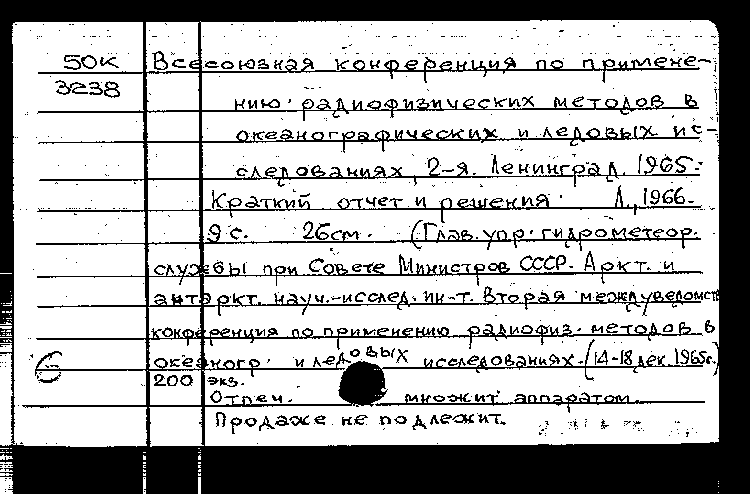 50К Всесоюзная конференция по примене-
3238
нию радиофизических методов в
океанографических и ледовых ис-
следованиях, 2-я. Ленинград. 1965.
Краткий отчет и решения. Л., 1966.
9 с. 26см. (Глав. упр. гидрометеор.
службы при Совете Министров СССР. Аркт. и
антаркт. науч.-исслед. ин-т. Вторая междуведомств
конференция по применению радиофиз. методов в
океаногр. и ледовых исследованиях. (14-18 дек. 1965г.)
б
200 экз.
Отпеч. множит. аппаратом.
Продаже не подлежит.